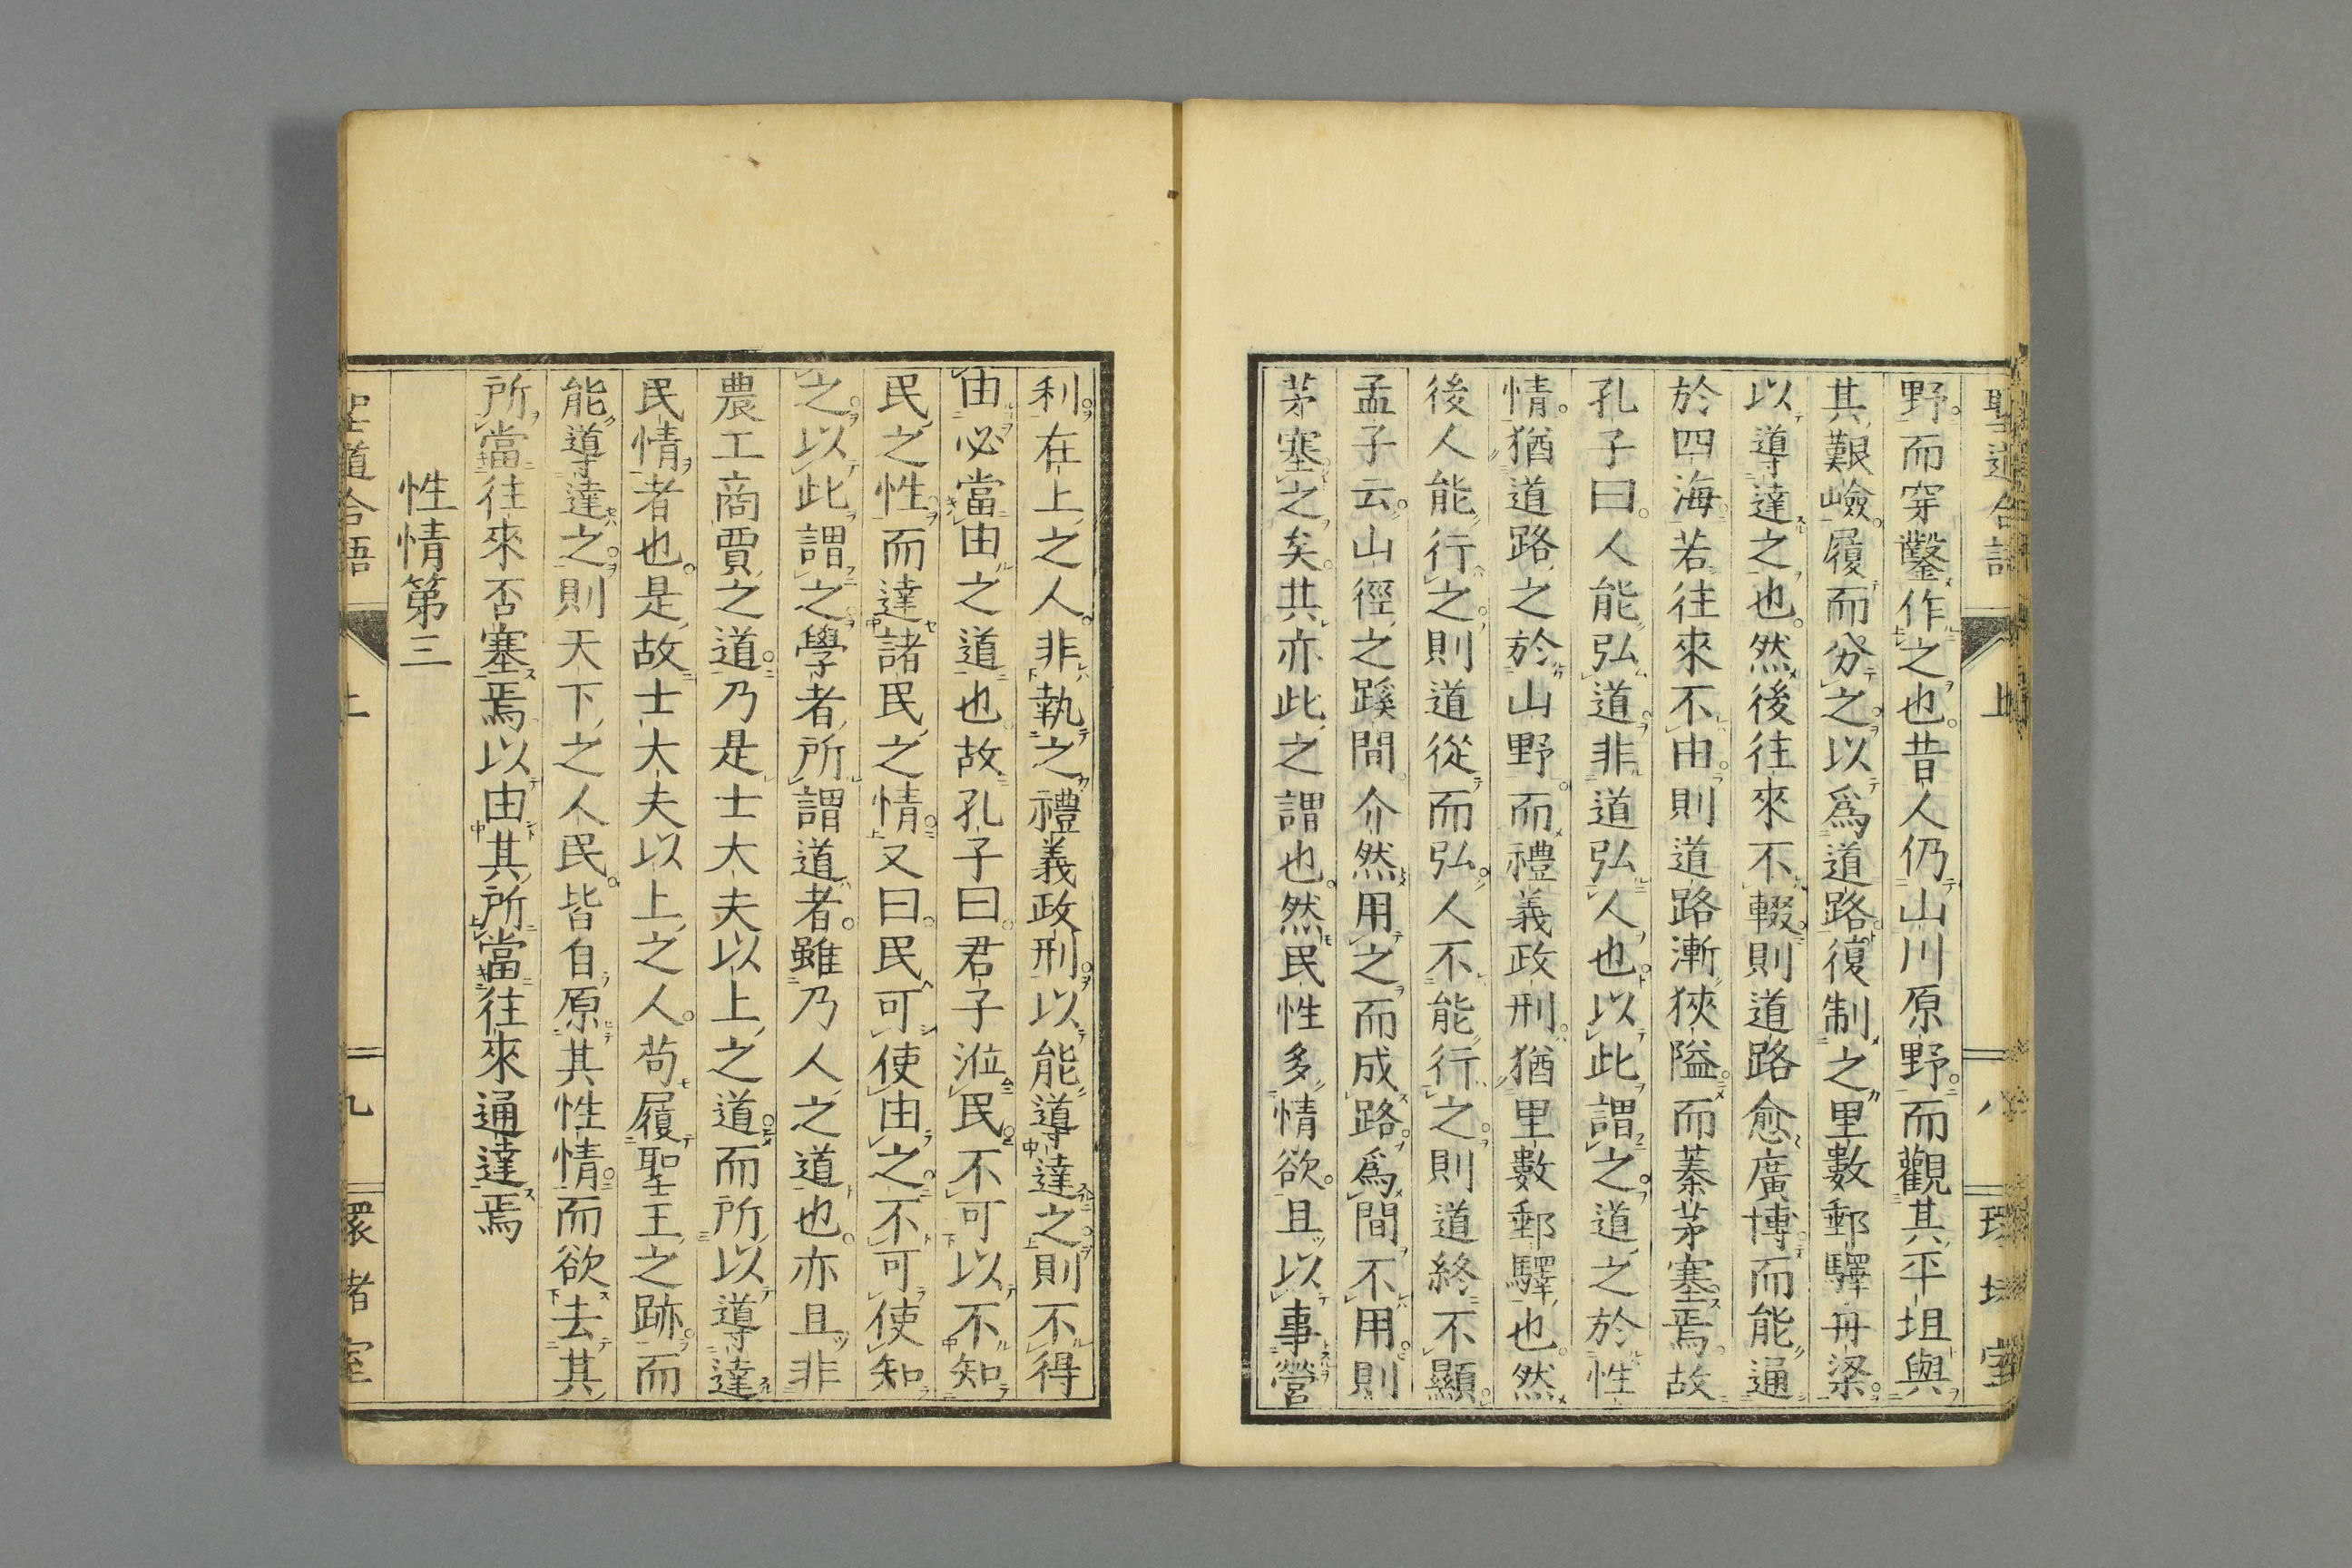 聖道合語 上 八 環堵室
野而穿鑿作之也昔人仍山川原野而觀其平坦與
其艱嶮履而分之以爲道路復制之里數郵驛舟梁
以導達之也然後往來不輟則道路愈廣博而能通
於四海若往來不由則道路漸狹隘而蓁茅塞焉故
孔子曰人能弘道非道弘人也以此謂之道之於性
情猶道路之於山野而禮義政刑猶里數郵驛也然
後人能行之則道從而弘人不能行之則道終不顯
孟子云山徑之蹊間介然用之而成路爲間不用則
茅塞之矣其亦此之謂也然民性多情欲且以事營
利在上之人非執之禮義政刑以能導達之則不得
由必當由之道也故孔子曰君子涖民不可以不知
民之性而達諸民之情又曰民可使由之不可使知
之以此謂之學者所謂道者雖乃人之道也亦且非
農工商賈之道乃是士大夫以上之道而所以導達
民情者也是故士大夫以上之人苟履聖王之跡而
能導達之則天下之人民皆自原其性情而欲去其
所當往來否塞焉以由其所當往來通達焉
性情第三
聖道合語 上 九 環堵室